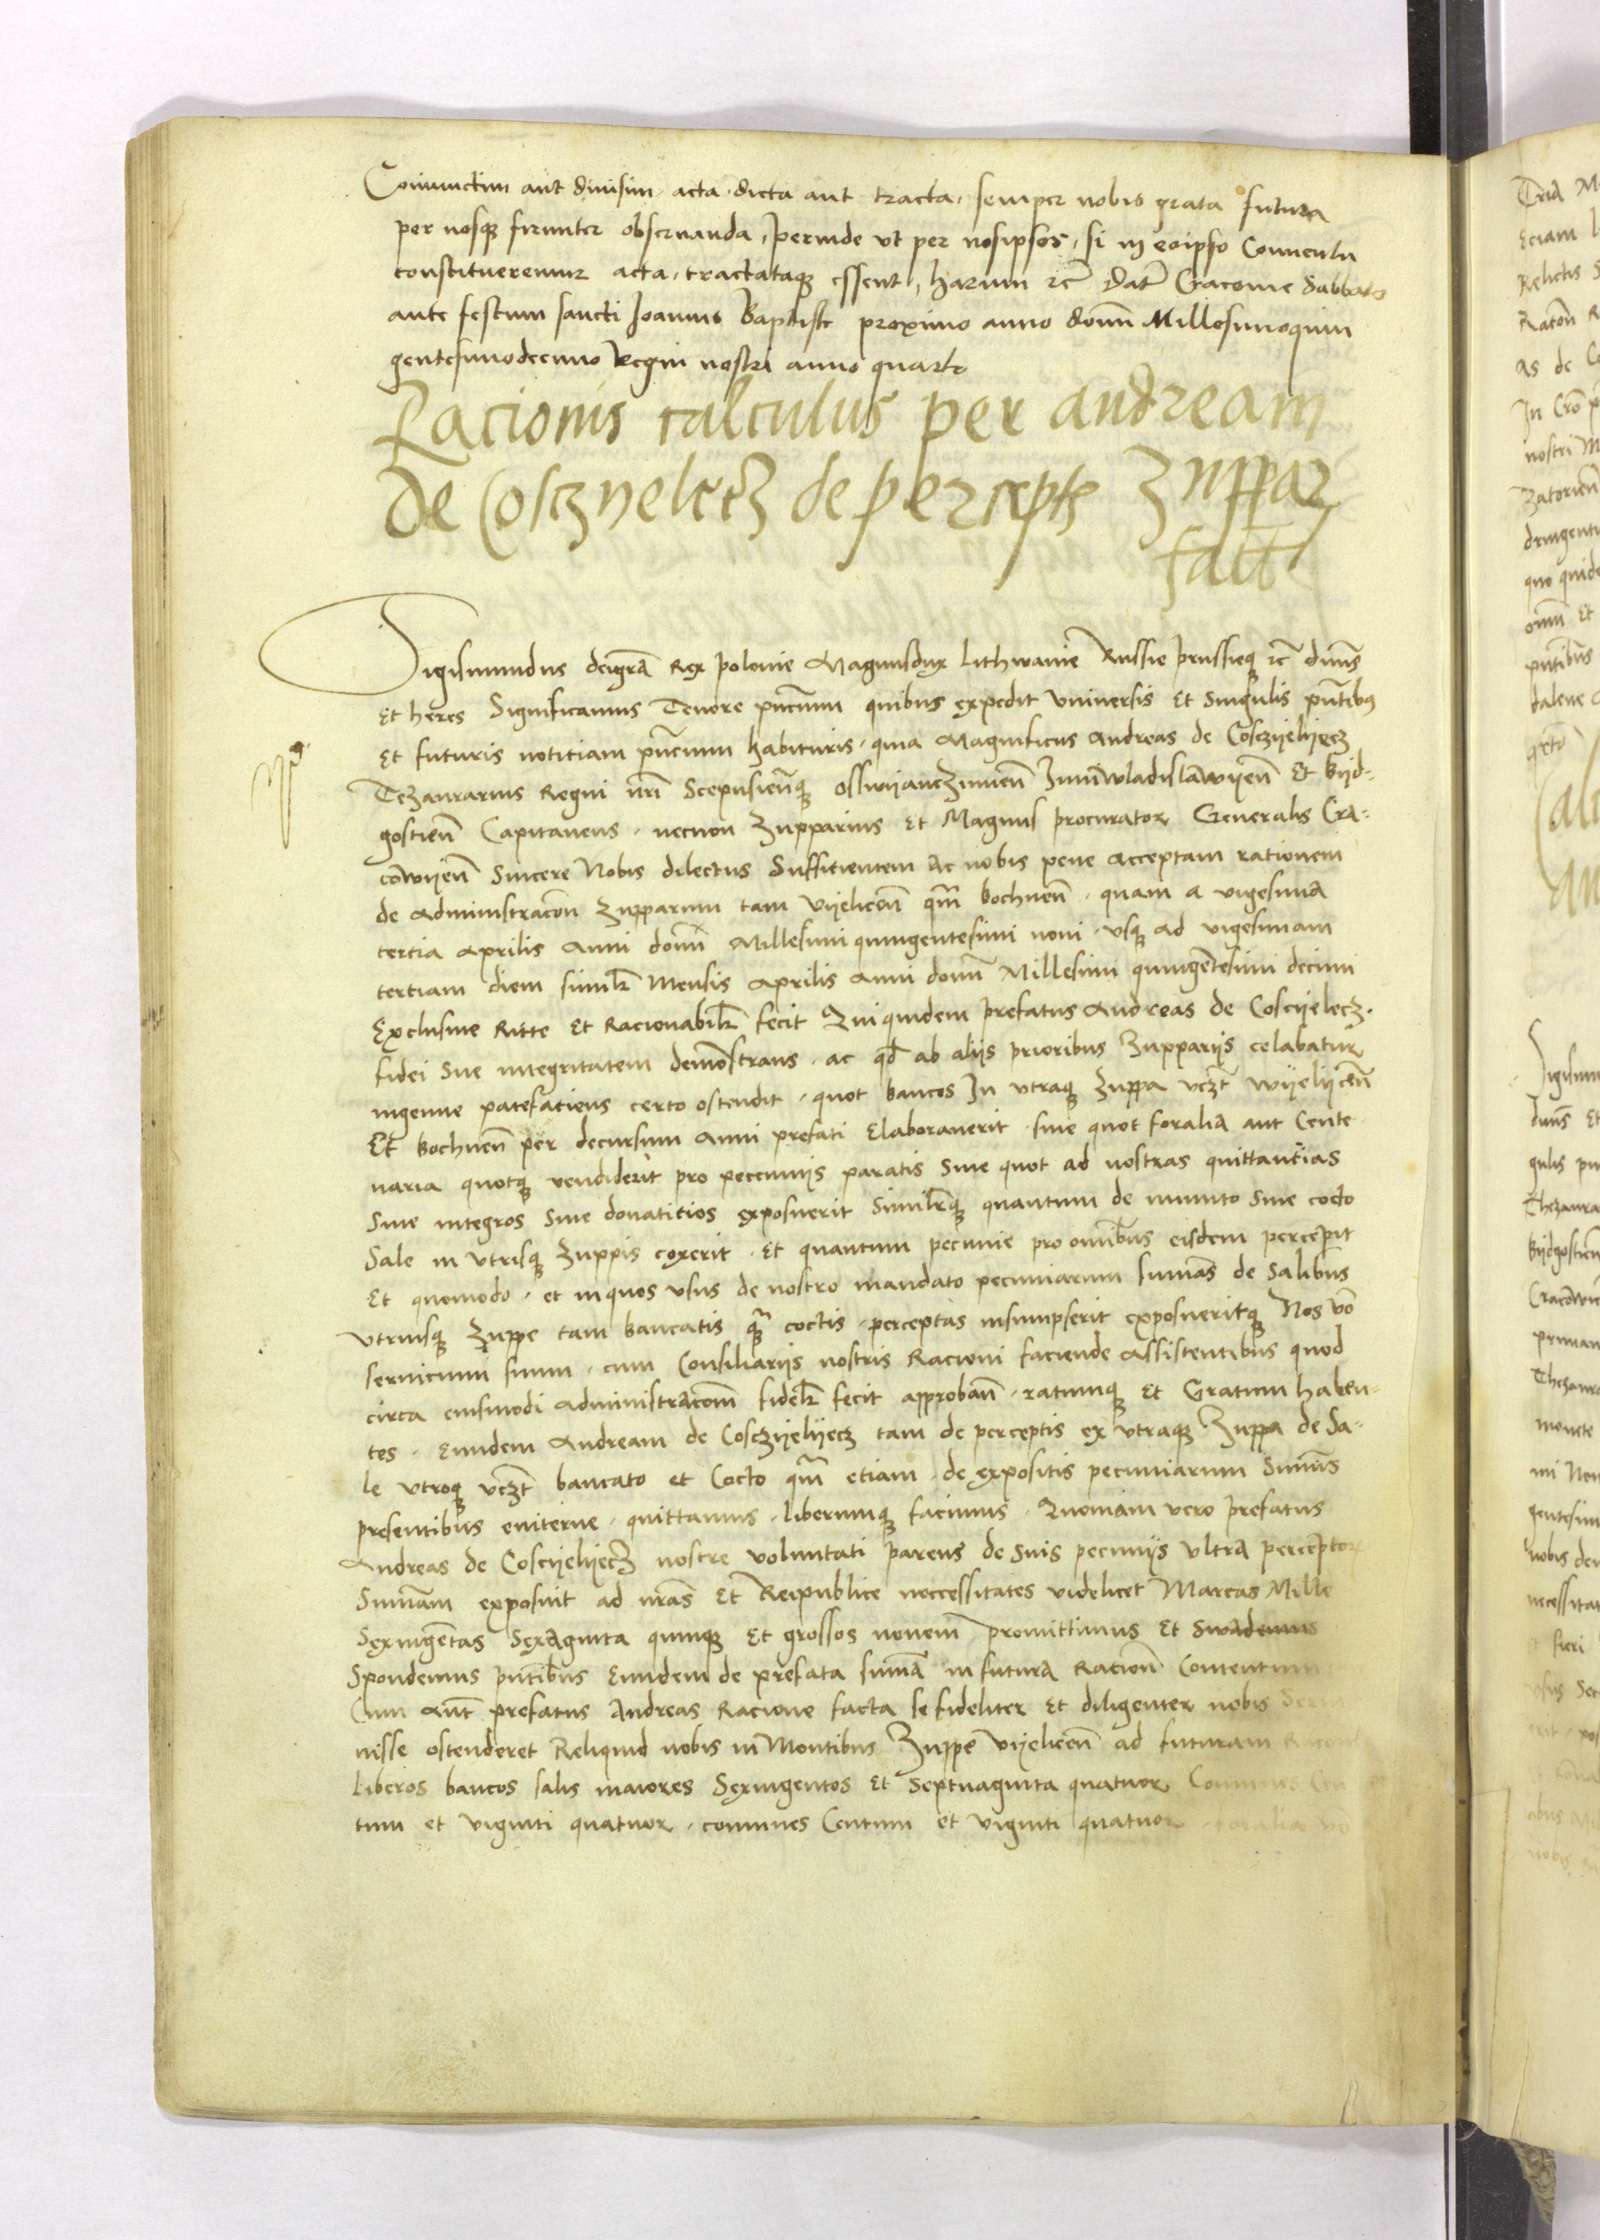 Coniunctim aut diuisim acta dicta aut tracta, semper nobis grata futura
per nosq firmiter obseruanda, perinde vt per nosipsos, si in eoipso Conuentu
constitueremur acta, tractataq essent, harum rc Dat Cracouie Sabbato
ante festum sancti Joannis Baptiste proximo anno domi Millesimoquin
gentesimodecimo Regni nostri anno quarto
Racionis calculus per andream
de Cosczyelecz de perceptis Zuppar
fact
Sigismundus deigra Rex polonie Magnusdux Lithwanie Russie prussieq rc dnus
Et heres Significamus Tenore pntium quibus expedit Vniuersis Et Singulis pntibus
Et futuris notitiam pntium habituris quia Magnificus Andreas de Cosczyelyecz
Tezaurarius Regni nri Scepusienq Osswyanczimien Juniwladislawyen Et Byd-
gostien Capitaneus necnon Zupparius Et Magnus procurator Generalis Cra-
cowyen Sincere Nobis dilectus Sufficientem Ac nobis pene acceptam rationem
de Administracon Zupparum tam Vyelicen qm Bochnen quam a vigesima
tertia Aprilis Anni domi Millesimi quingentesimi noni vsq ad vigesimam
tertiam diem similr Mensis Aprilis Anni domi Millesimi quingentesimi decimi
Exclusiue Ritte Et Racionabilr fecit Quiquidem prefatus Andreas de Coscyelecz
fidei Sue integritatem demonstrans ac qd ab alijs prioribus Zupparijs celabatur
ingenue patefaciens certo ostendit quot bancos In vtraq Zuppa vczt Wyelycen
Et Bochnen per decursum Anni prefati Elaborauerit siue quot foralia aut Cente
naria quotq vendiderit pro pecunijs paratis Siue quot ad nostras quittantias
Siue integros Siue donatitios exposuerit Similrq quantum de minuto Siue cocto
Sale in vtrisq Zuppis coxerit Et quantum pecunie pro omnibus eisdem percepit
Et quomodo et in quos vsus de nostro mandato pecuniarum sumas de Salibus
vtriusq Zuppe tam bancatis qm coctis perceptas insumpserit exposueritq Nos vo
seruicium suum cum Consiliarijs nostris Racioni faciende Assistentibus quod
circa eiusmodi Administracom fidelr fecit approban ratumq Et Gratum haben-
tes Eundem Andream de Cosczyelyecz tam de perceptis ex vtraq Zuppa de Sa-
le vtroq vczt bancato et Cocto qm etiam de expositis pecuniarum Sumis
presentibus euiterne quittamus liberumq facimus Quoniam vero prefatus
Andreas de Coscyelyecz nostre voluntati parens de Suis pecunijs vltra perceptor
Sumam exposuit ad nras Et Reipublice neccessitates videlicet Marcas Mille
Sexingentas Sexaginta quinq Et grossos nouem promittimus Et Suademus
Spondemus pntibus Eundem de prefata suma in futura Racion Contentum
Cum aut prefatus Andreas Racione facta se fideliter Et diligenter nobis Serui
uisse ostenderet Reliquid nobis in Montibus Zuppe Vyelicen ad futuram Racion
Liberos bancos salis maiores Sexingentos Et Septuaginta quatuor Comunes Cen
tum et viginti quatuor comunes Centum et viginti quatuor foralia vo